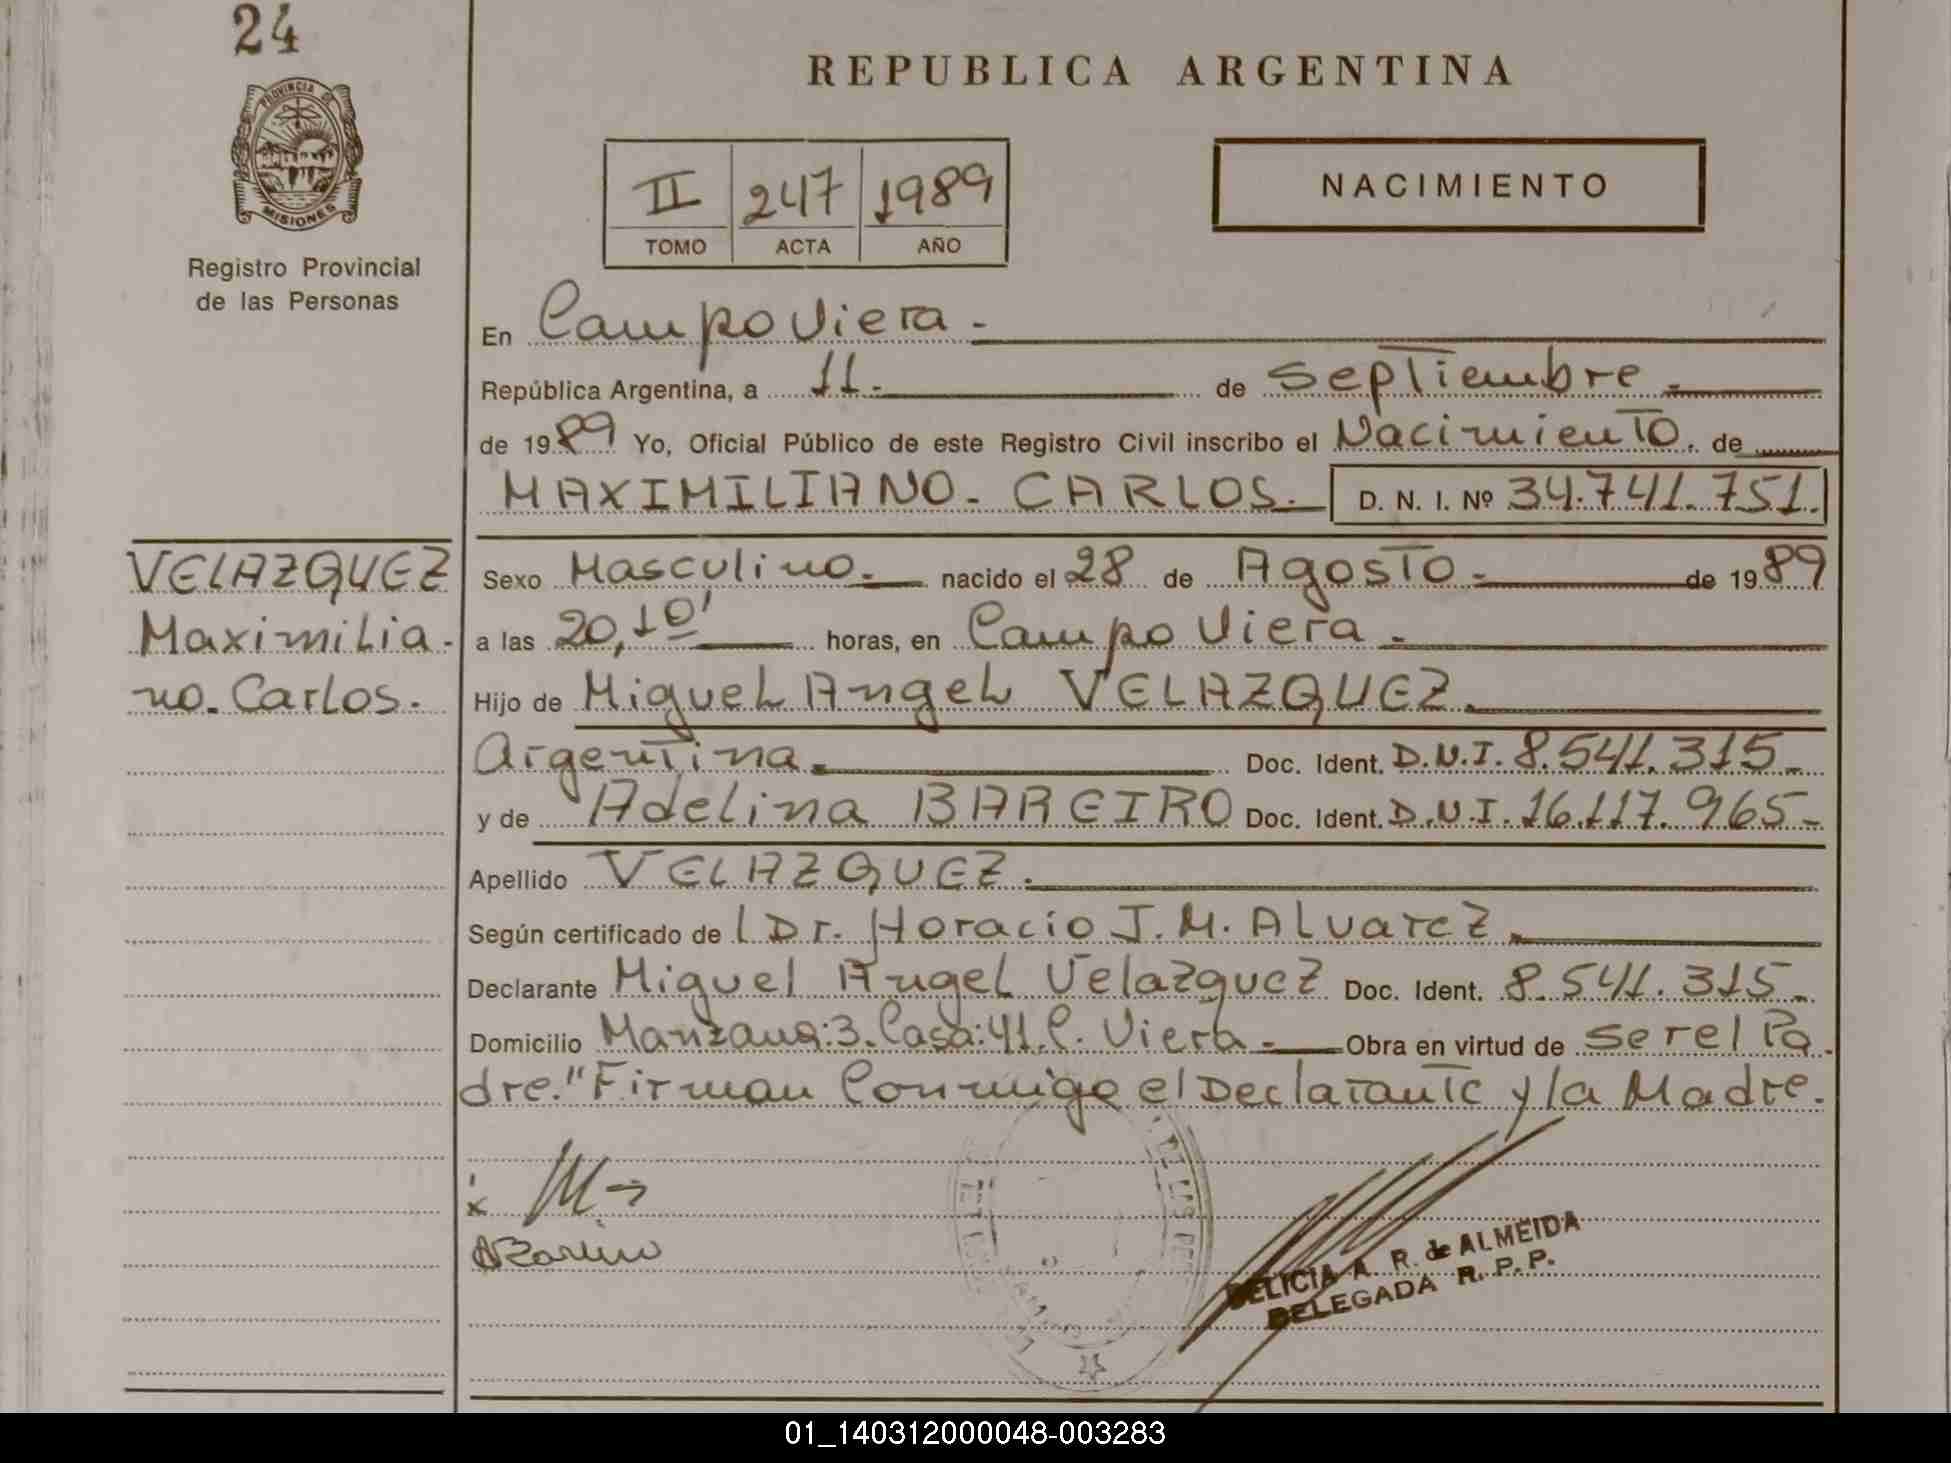 24
PROVINCIA DE
MISIONES
Registro Provincial
de las Personas
REPUBLICA ARGENTINA
II 247 1989
TOMO ACTA AÑO
NACIMIENTO
En Campo Viera.-
República Argentina, a 11.- de Septiembre.-
de 1989 Yo, Oficial Público de este Registro Civil inscribo el Nacimiento. de
MAXIMILIANO. CARLOS.- D. N. I. Nº 34.741.751.
VELAZQUEZ
Maximilia-
no. Carlos.
Sexo Masculino.- nacido el 28 de Agosto.- de 1989
a las 20,10' horas, en Campo Viera.-
Hijo de Miguel Angel VELAZQUEZ.
Argentina. Doc. Ident. D.N.I. 8.541.315.-
y de Adelina BAREIRO Doc. Ident. D.N.I. 16.117.965-
Apellido VELAZQUEZ.
Según certificado de l Dr. Horacio J. M. Alvarez.
Declarante Miguel Angel Velazquez Doc. Ident. 8.541.315.
Domicilio Manzana:3.Casa:41.C. Viera.- Obra en virtud de ser el Pa-
dre." Firman Conmigo el Declarante y la Madre.
x
DELICIA A. R. de ALMEIDA
DELEGADA R. P. P.
01_140312000048-003283